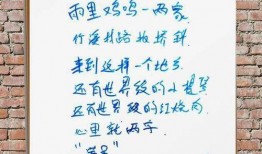 雨里鸡鸣一两家
竹溪村路板桥斜
来到这样一个地方
还有世界级的小提琴
还有世界级的红烧肉
心里就两字